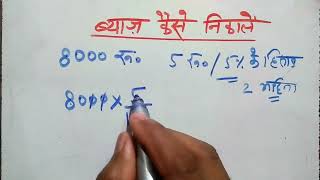 ब्याज़ कैसे निकालें
8000 रू० 5 रू० / 5% के हिसाब
2 महिना
8000 × 5